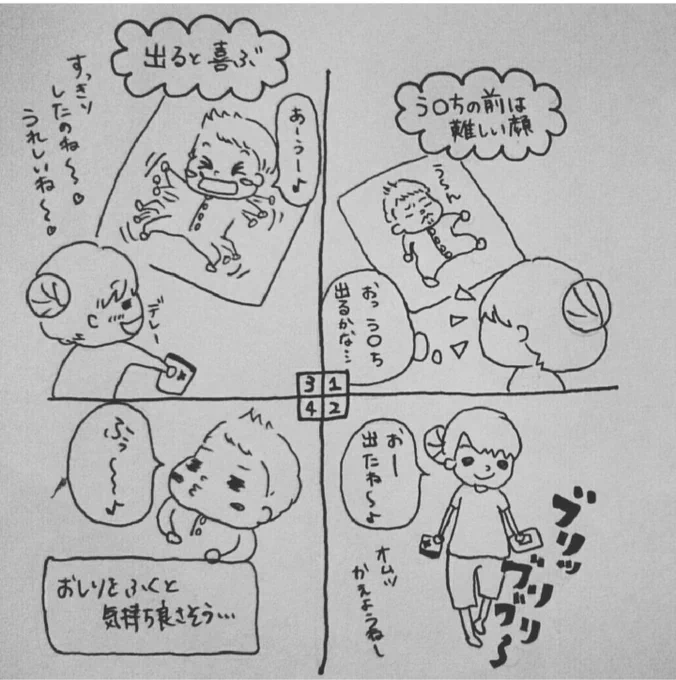 う〇ちの前は
難しい顔
うーん
おっ う〇ち
出るかな…
1
2
3
4
おー
出たね〜♪
オムツ
かえようねー
ブリッ
ブリ
ブリ〜
出ると喜ぶ
あーうー♪
すっきり
したのね〜♥
うれしいね〜♥
デレー
ぶぅ〜〜♪
おしりをふくと
気持ち良さそう…